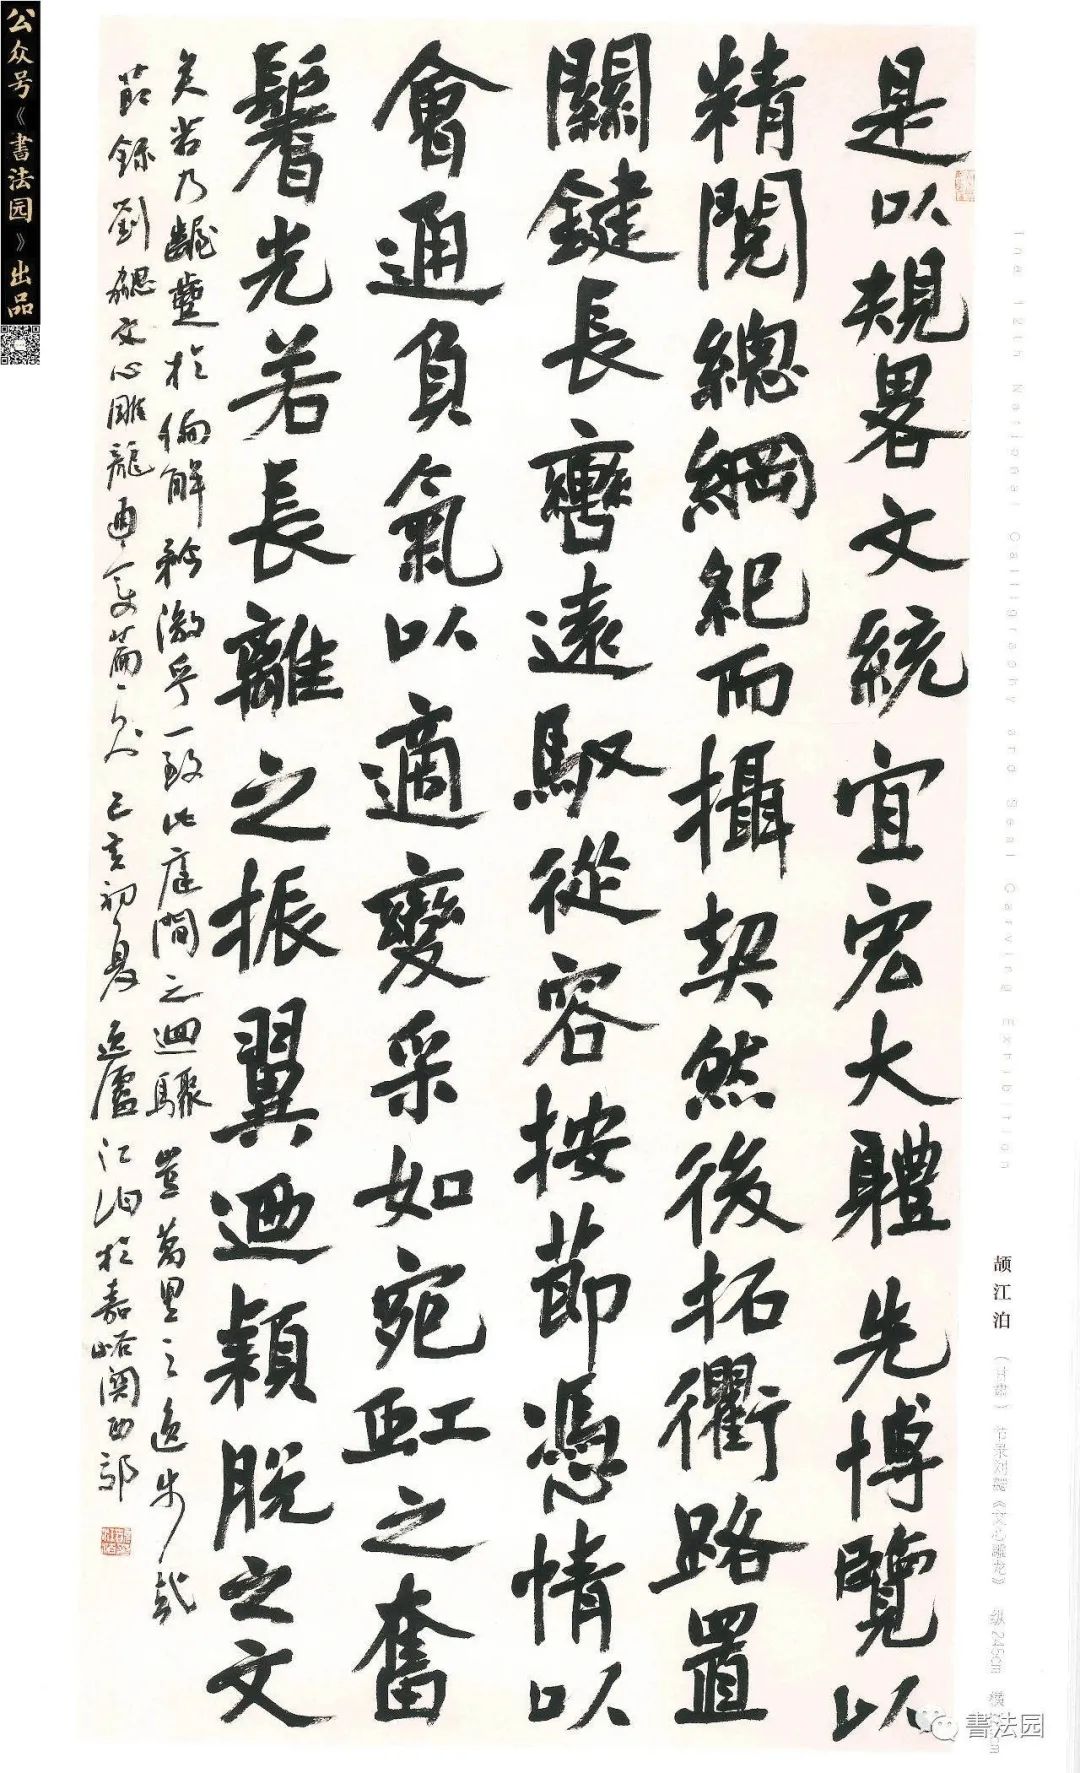 公众号《書法园》出品
是以規畧文統宜宏大體先博覽以
精閱總綱紀而攝契然後拓衢路置
關鍵長轡遠馭從容按節憑情以
會通負氣以適變采如宛虹之奮
鬐光若長離之振翼迺穎脫之文
矣若乃齷齪於偏解矜激乎一致此庭間之迴驟豈萬里之逸步哉
節録劉勰文心雕龍通變篇 己亥初夏逸廬江泊於嘉峪關西
The 12th National Calligraphy and Seal Carving Exhibition
颉江泊 （甘肃） 节录刘勰《文心雕龙》 纵245cm 横
書法园